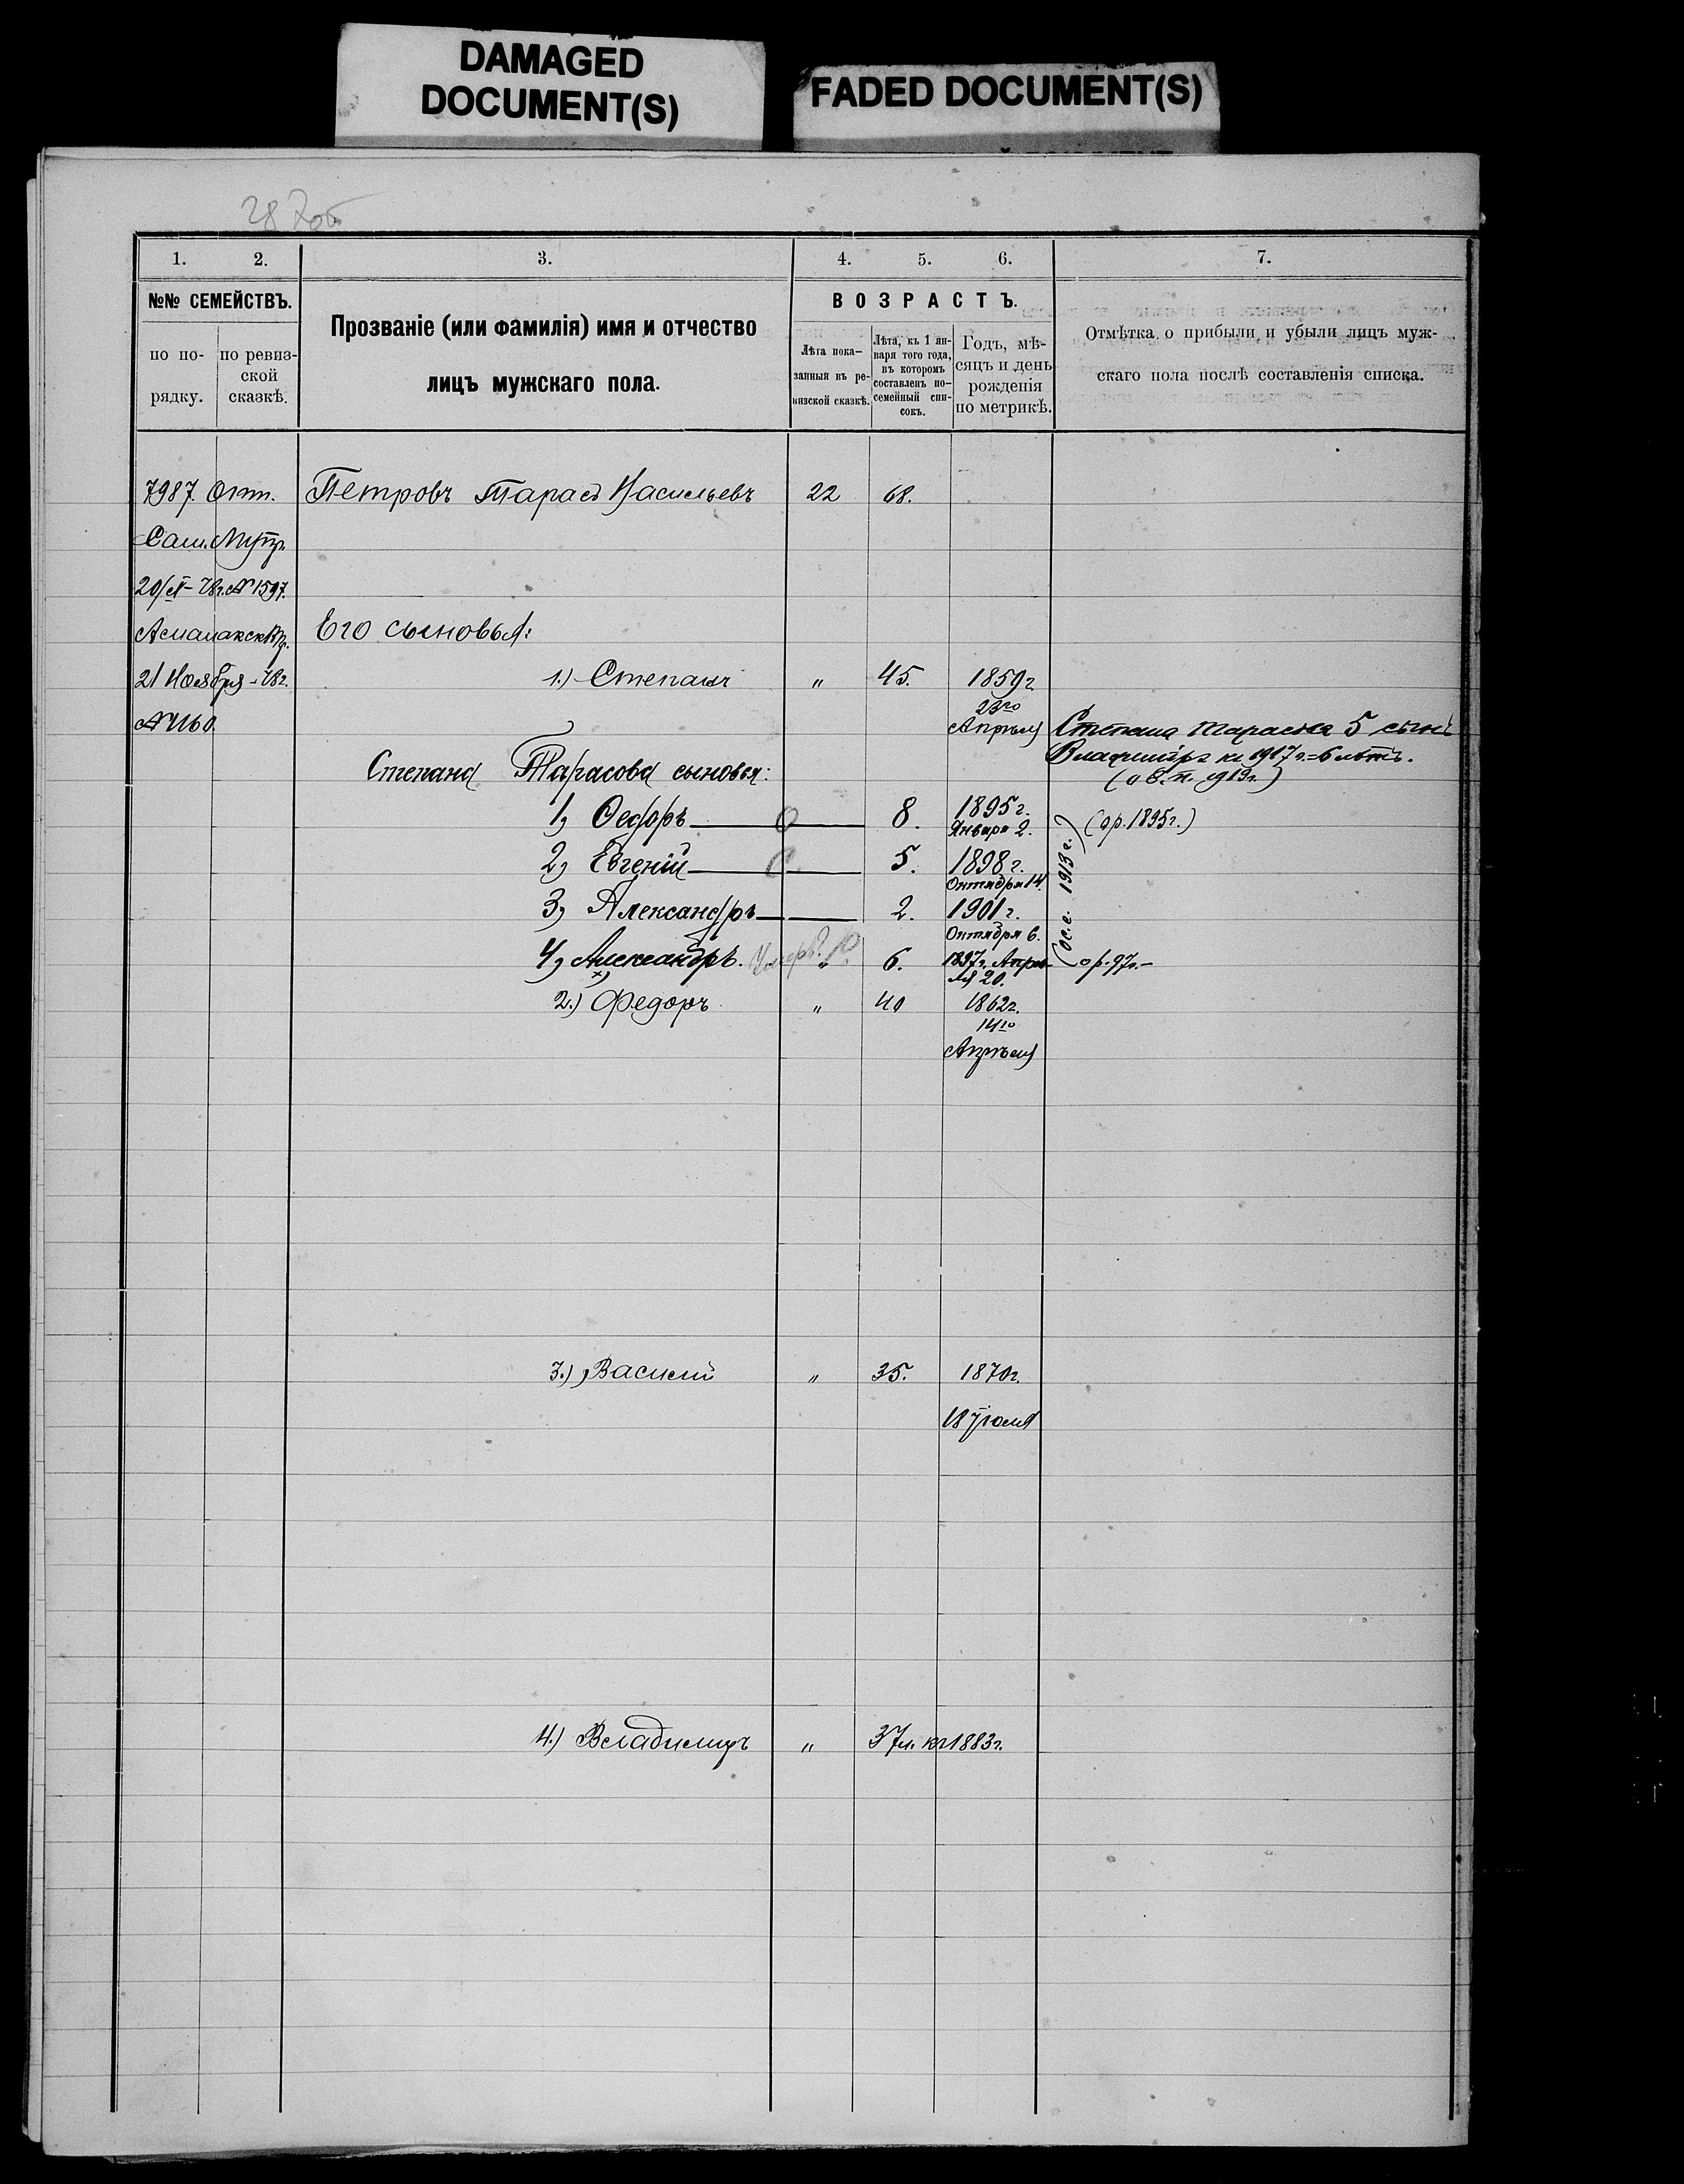 DAMAGED
DOCUMENT(S)
FADED DOCUMENT(S)
287об
1. 2. 3. 4. 5. 6. 7.
№№ СЕМЕЙСТВЪ.
по по-
рядку.
по ревиз-
ской
сказкѣ.
Прозваніе (или фамилія) имя и отчество
лицъ мужскаго пола.
ВОЗРАСТЪ.
Лѣта пока-
занныя въ ре-
визской сказкѣ.
Лѣта, къ 1 ян-
варя того года,
въ которомъ
составленъ по-
семейный спи-
сокъ.
Годъ, мѣ-
сяцъ и день
рожденія
по метрикѣ.
Отмѣтка о прибыли и убыли лицъ муж-
скаго пола послѣ составленія списка.
7987. Петровъ Тарасъ Васильевъ 22 68.
№ 1597.
Его сыновья:
21 Ноября -78г. 1.) Степанъ " 45. 1859г.
№ 1160. 23го
Апрѣля Степана Тарасова 5 сынъ
Владиміръ къ 1917 г.=6 лѣтъ.
Степана Тарасова сыновья:
1, Ѳедоръ 8. 1895г. (ор. 1895г.)
Января 2.
2, Евгеній 5. 1898г.
Октября 14.
3, Александръ 2. 1901г.
Октября 6.
1913 г.)
4, Александръ. Умеръ. " 6. 1897г. Апрѣ- ор. 97г.-
ля 20.
2.) Федоръ " 40 1862г.
14го
Апрѣля
3.) Василій " 35. 1870г.
18 Іюля
4.) Владиміръ " 37л. къ 1883г.